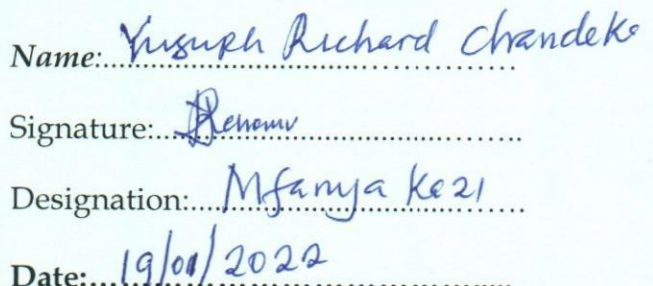 Name: Yusuph Richard Chandeke
Signature:
Designation: Mfanya Kazi
Date: 19/01/2022